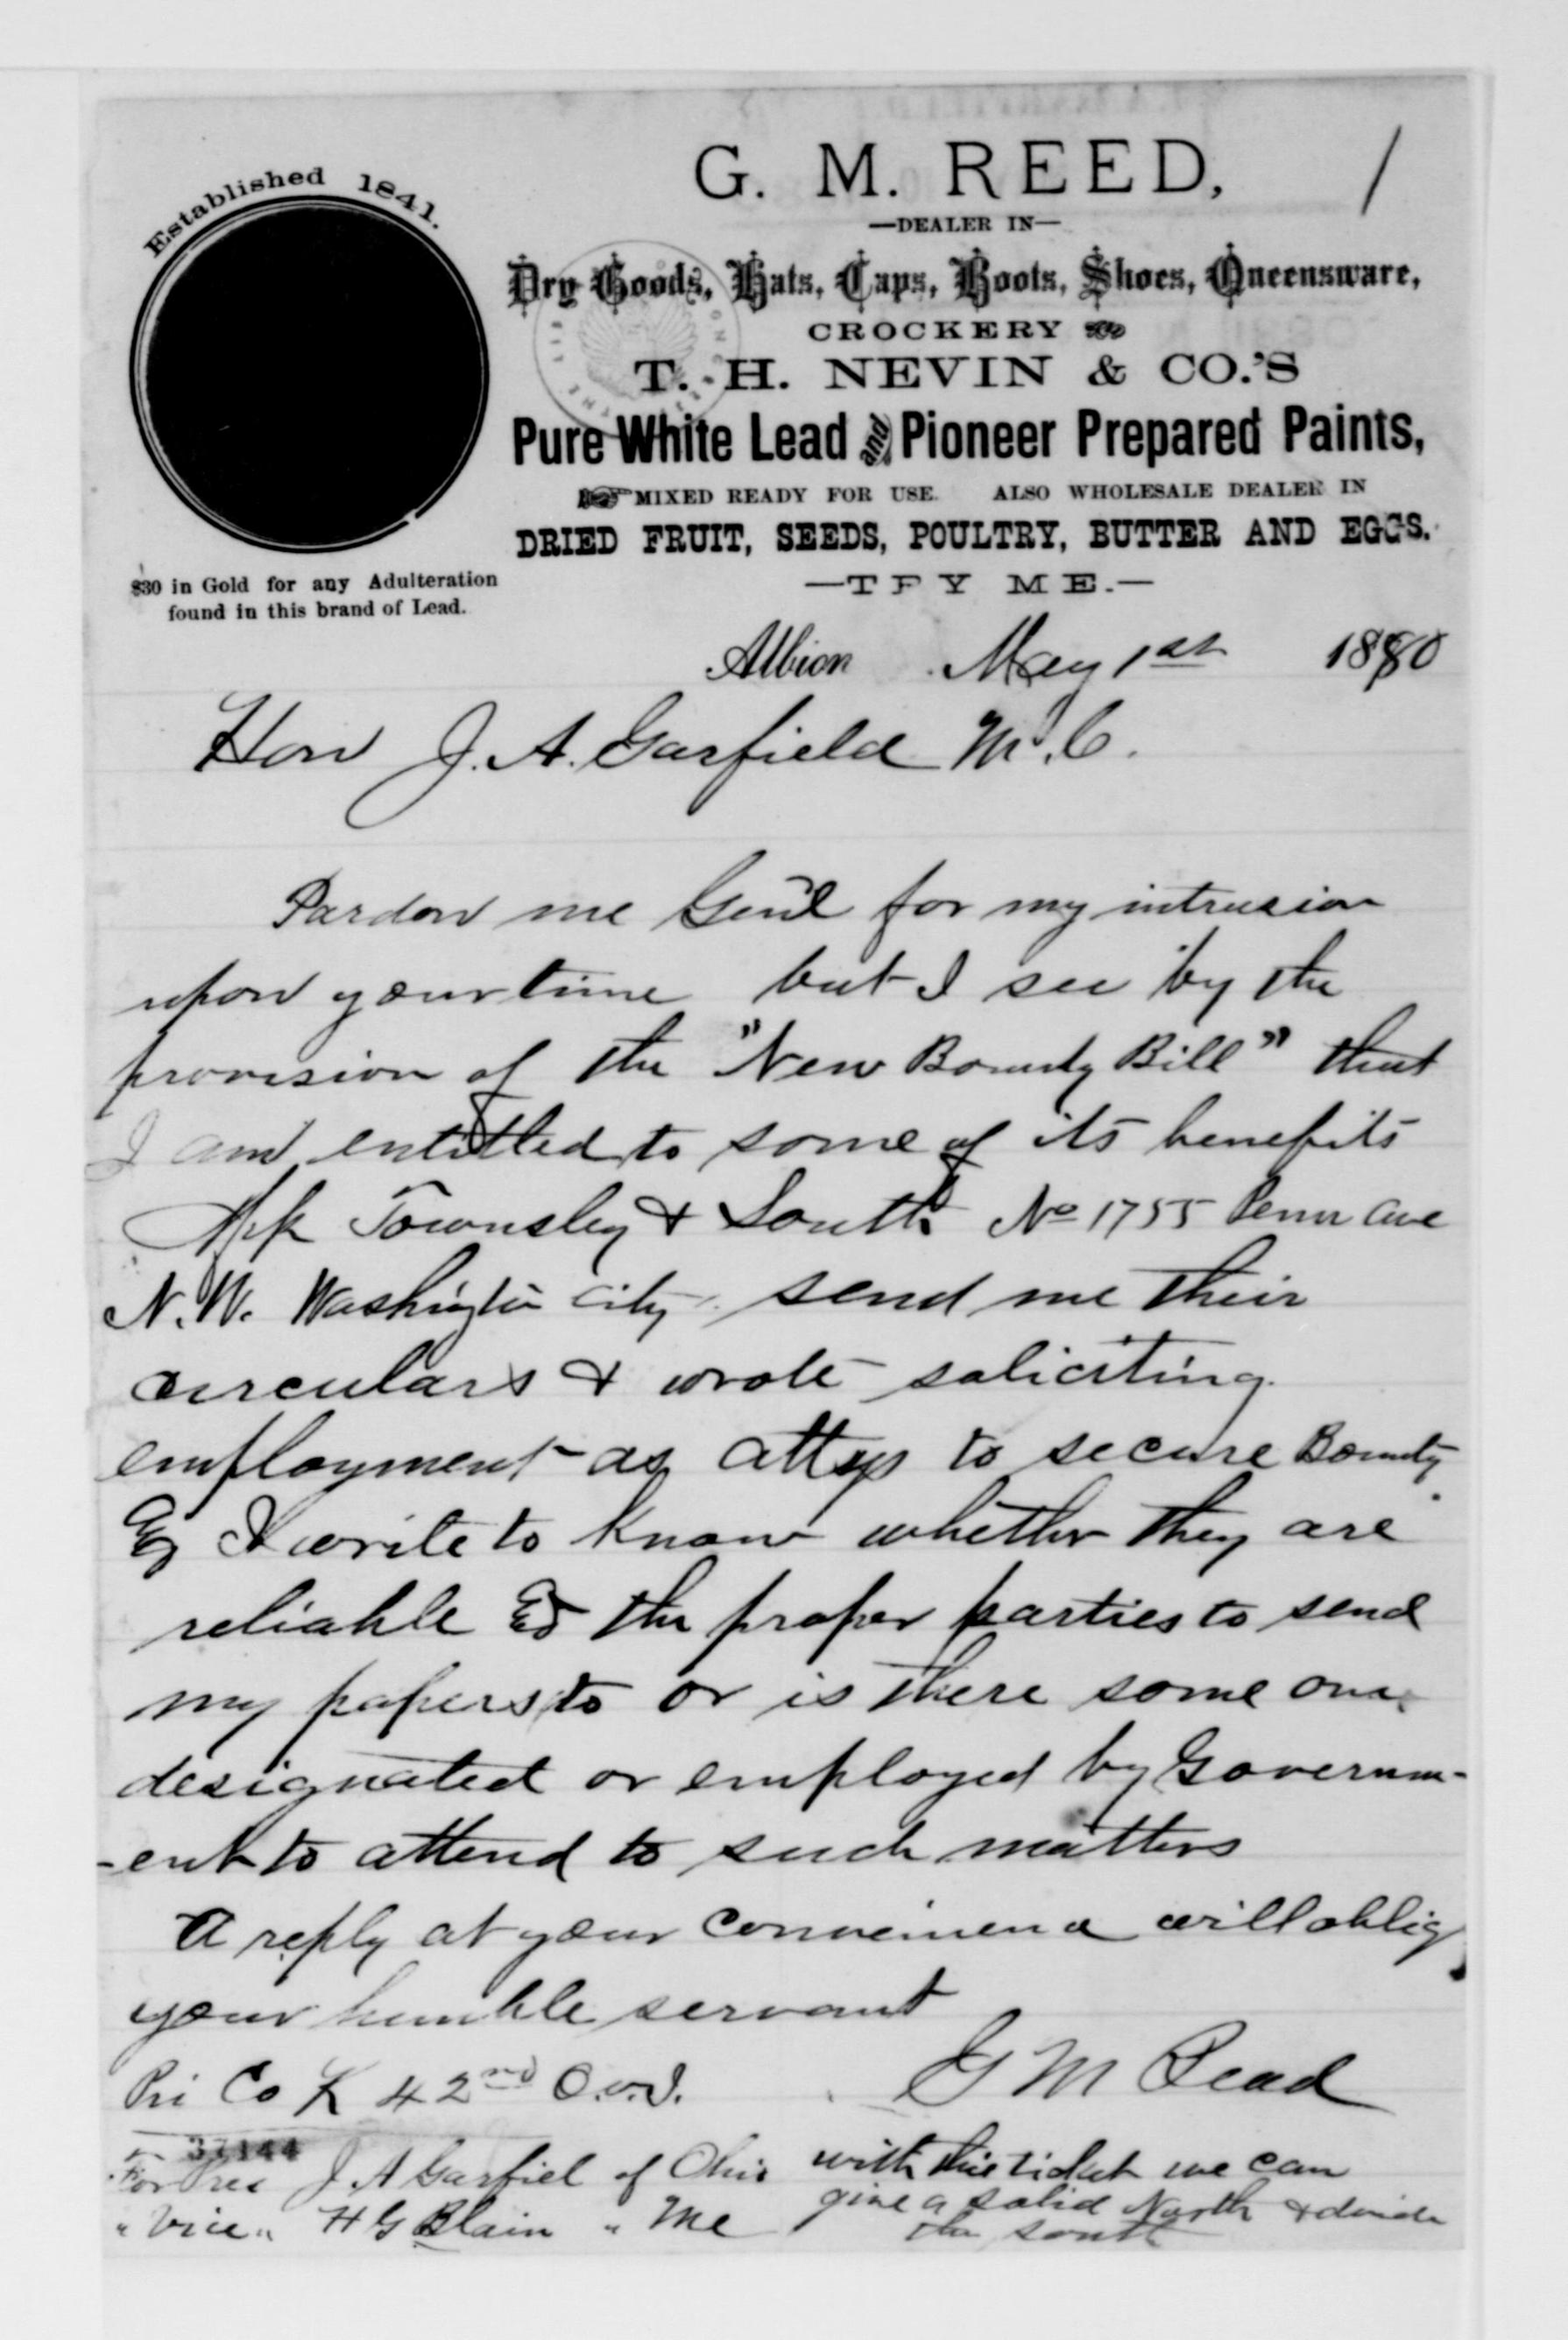 Established 1841.
$30 in Gold for any Adulteration
found in this brand of Lead.
G. M. REED,
—DEALER IN—
Dry Goods, Hats, Caps, Boots, Shoes, Queensware,
CROCKERY
T. H. NEVIN & CO.'S
Pure White Lead and Pioneer Prepared Paints,
MIXED READY FOR USE. ALSO WHOLESALE DEALER IN
DRIED FRUIT, SEEDS, POULTRY, BUTTER AND EGGS.
—TRY ME.—
Albion May 1st 1880
Hon J. A. Garfield M.C.
Pardon me Gen'l for my intrusion
upon your time but I see by the
provision of the "New Bounty Bill" that
I am entitled to some of its benefits
Townsley & South No 1755 Penn ave
N.W. Washington City send me their
circulars & wrote soliciting
employment as attys to secure Bounty
& I write to know whether they are
reliable & the proper parties to send
my papers to or is there some one
designated or employed by Governm-
-ent to attend to such matters
A reply at your convenience will oblig
your humble servant
G M Read
Pri Co K 42nd O.V.I.
37144
For Pres J. A Garfiel of Ohio
" Vice " H G Blain " Me
with this ticket we can
give a solid North & divide
the south